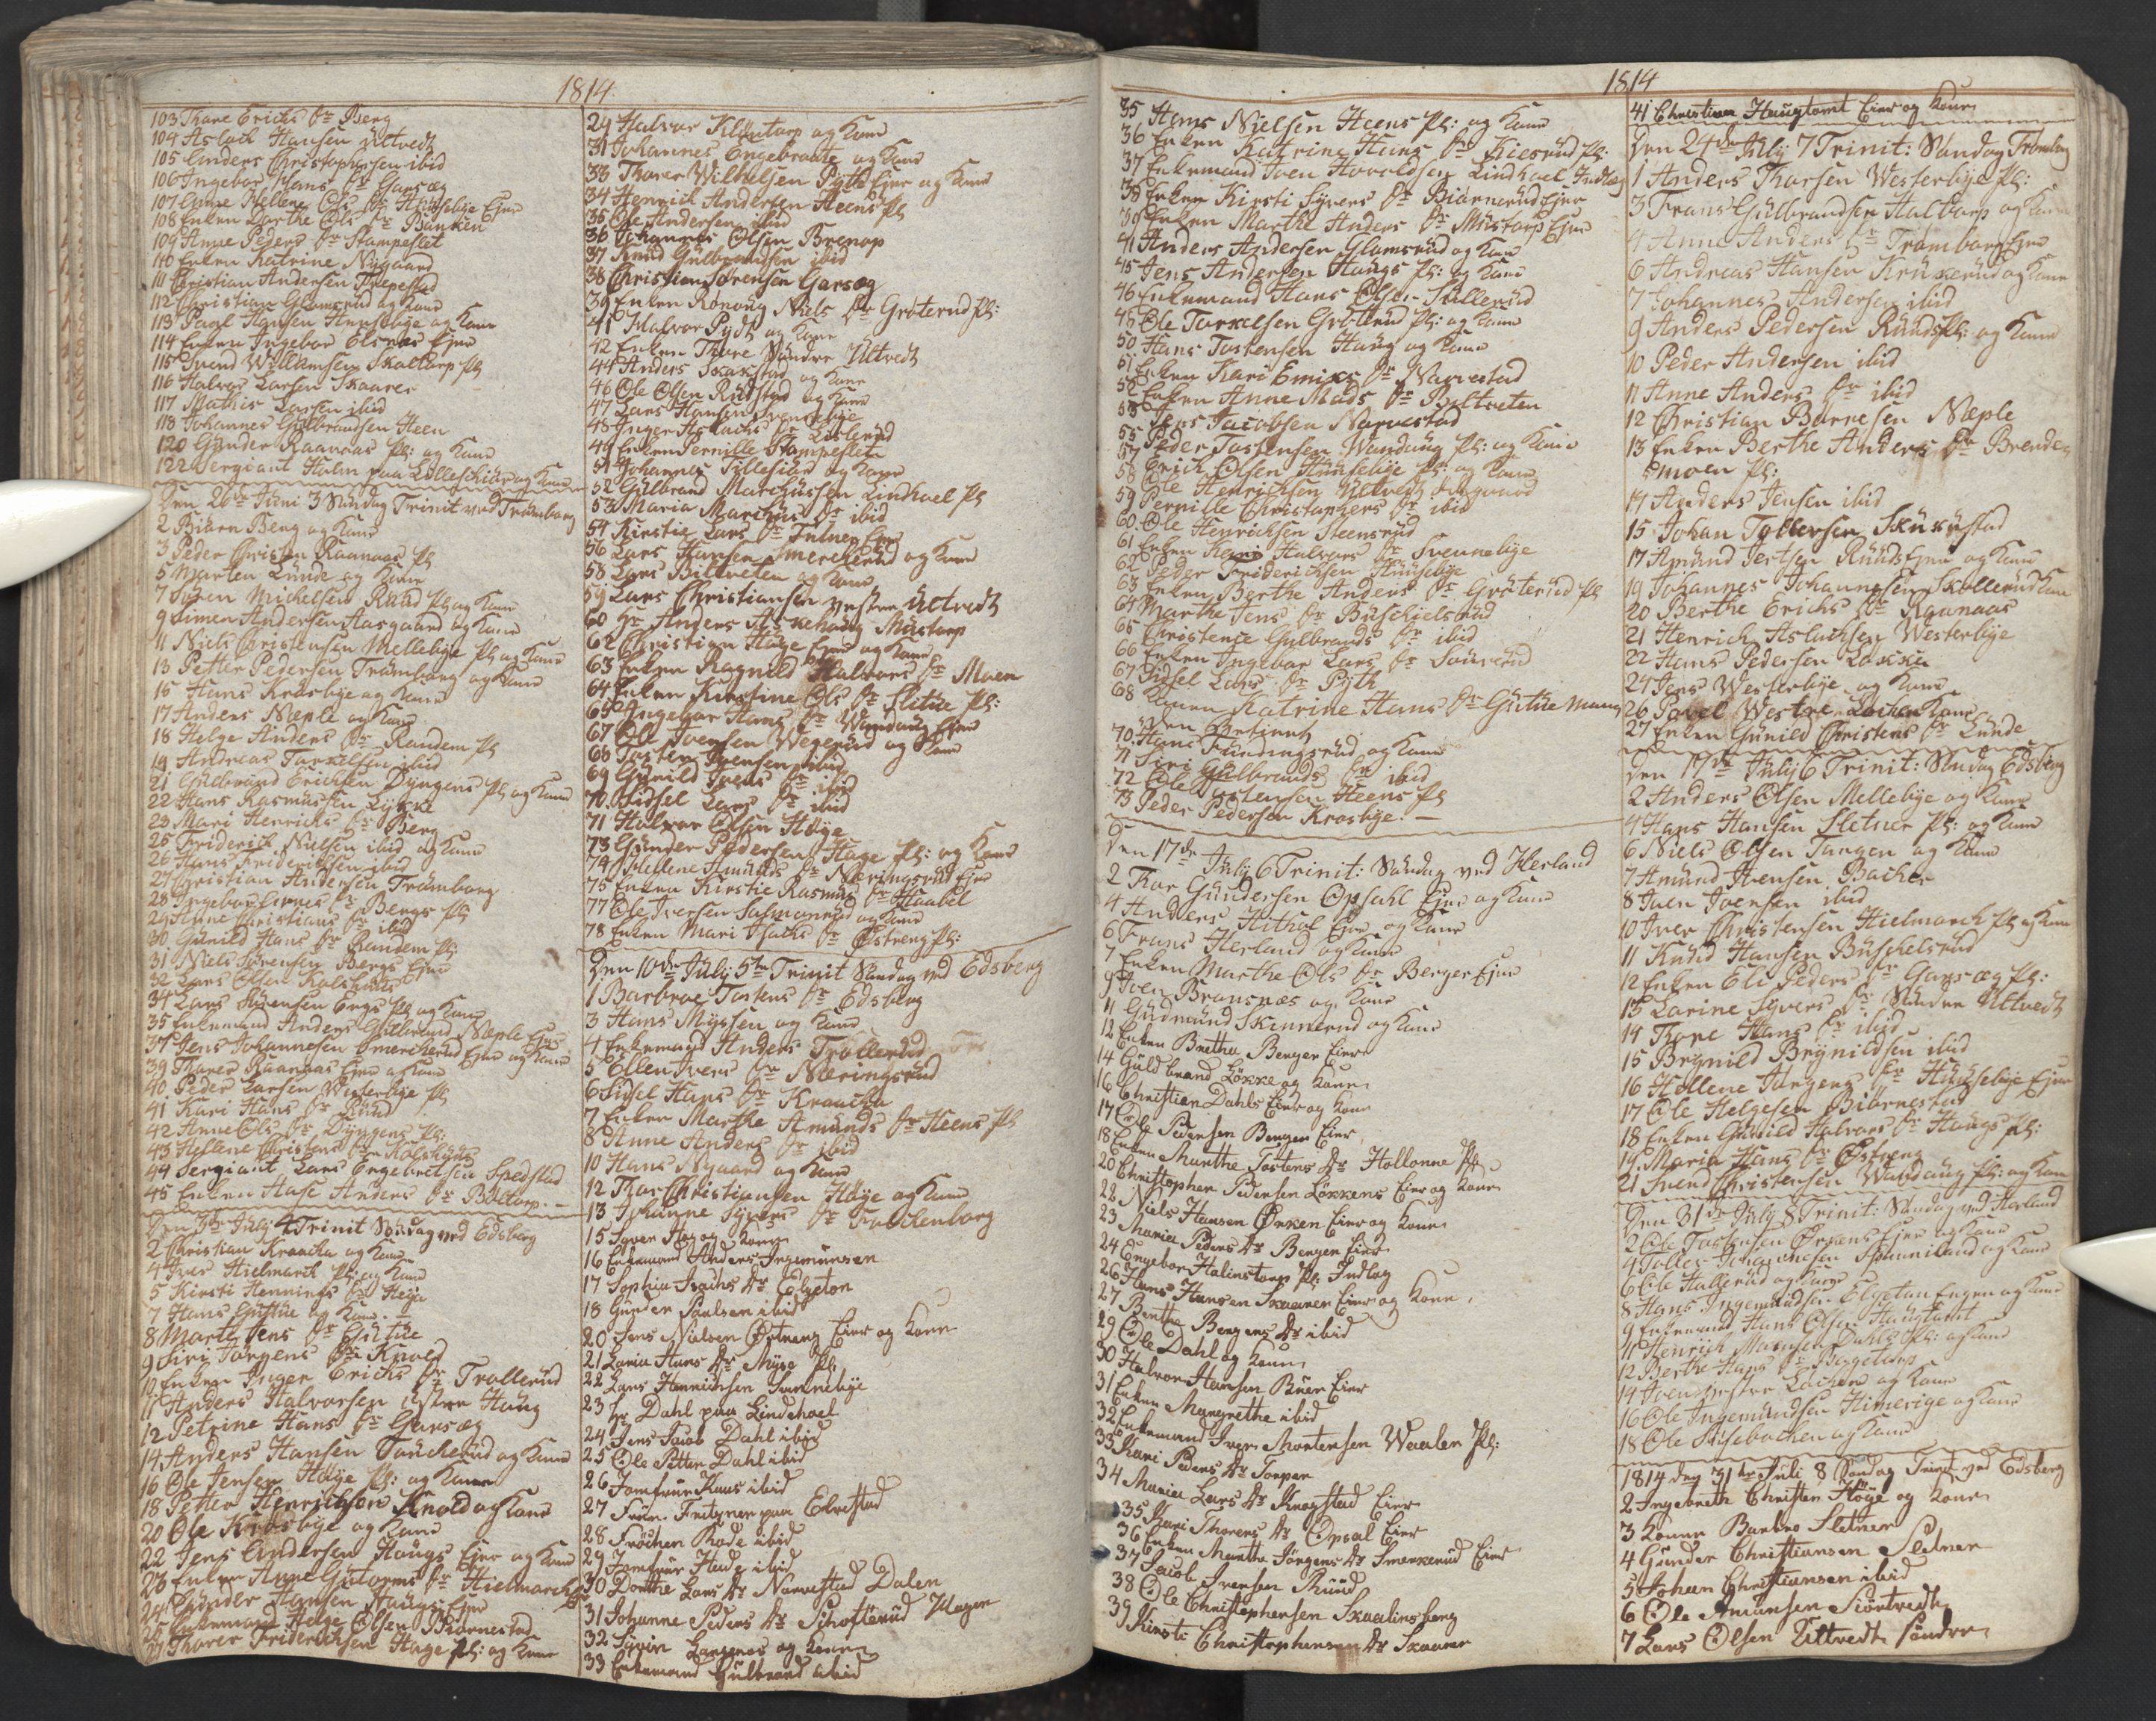 1814
103 Thore Erichs Dr Berg
104 Aslach Hansen Ultvedt
105 Anders Christophersen ibid
106 Ingebor Hans Dr Garsæg
107 Anne Hellene Ols Dr Huusebye Ejer
108 Enken Dorthe Ols Dr Banken
109 Anne Peders Dr Stampeflet
110 Enken Katrine Nygaard
111 Christian Andersen
112 Christian Glamsrud og Kone
113 Paul Hansen Huusebye og Kone
114 Enken Ingebor Elsnes Ejer
115 Svend Willumsen Skaltorp Pl
116 Halvor Larsen Skaarer
117 Mathis Larsen ibid
118 Johannes Gulbrandsen Heen
120 Gunder Raanaas Pl: og Kone
122 Sergiant Holm paa Lilleskiær og Kone
Den 26de Juni 3 Søndag Trinit ved Trømborg
2 Biørn Berg og Kone
3 Peder Christen Raanaas Pl
5 Morten Lunde og Kone
7 Søren Michelsen Ruud Pl og Kone
9 Simen Andersen Aasgaard og Kone
11 Niels Christensen Mellebye Pl og Kone
13 Petter Pedersen Trømborg og Kone
15 Hans Krosbye og Kone
17 Anders Næple og Kone
18 Helge Anders Dr Randem Pl
19 Andreas Torkelsen ibid
21 Gulbrand Erichsen Dyngens Pl og Kone
22 Hans Rasmussen Løkke
23 Mari Henrichs Dr Berg
25 Friderich Nielsen ibid og Kone
26 Hans Friderichsen ibid
27 Christian Andersen Trømborg
28 Ingebor Dr Bergs Pl
29 Anne Christians Dr ibid
30 Gunild Hans Dr Randem Pl:
31 Niels Sørensen Bergs Ejer
32 Lars Olsen Kolskuus
34 Lars Sørensen Engs Pl og Kone
35 Enkemand Anders Gulbrand Næple Ejer
37 Jens Johannesen Smerkerud Ejer og Kone
39 Thorer Raanaas Ejer og Kone
40 Peder Larsen Westerbye Pl
41 Kari Hans Dr Ruud
42 Anne Ols Dr Dyngens Pl:
43 Hellene Christens Dr Kolskuus
44 Sergiant Lars Engebretsen Spedstad
45 Enken Aase Anders Dr Buctorp
Den 3de July 4 Trinit Søndag ved Edsberg
2 Christian Kraacka og Kone
4 Iver Hielmarck Pl: og Kone
5 Kirsti Hennings Dr Heija
7 Hans Gutue og Kone
8 Marte Jens Dr Gutue
9 Siri Jørgens Dr Knold
10 Enken Inger Erichs Dr Trollerud
11 Anders Halvorsen Østre Haug
12 Petrine Hans Dr Garsæg
14 Anders Hansen Touckerud og Kone
16 Ole Jensen Høije Pl: og Kone
18 Petter Henrichsen Knold og Kone
20 Ole Krosbye og Kone
22 Jens Andersen Haugs Ejer og Kone
23 Enken Anne Gutorms Dr Hielmarck
24 Gunder Hansen Haugs Ejer
25 Enkemand Helge Olsen Biørnestad
27 Thorer Friderichsen Hage Pl: og Kone
29 Halvor Kløntorp og Kone
31 Johannes Engebraate og Kone
33 Thorer Wilhelsen Pyth Ejer og Kone
34 Henrich Andersen Heens Pl
35 Ole Andersen ibid
36 Johannes Olsen Brenop
37 Knud Gulbrandsen ibid
38 Christian Sørensen Garsæg
39 Enken Rønoug Niels Dr Grøterud Pl:
41 Halvor Pydt og Kone
42 Enken Thore Søndre Ultvedt
44 Anders Skakstad og Kone
46 Ole Olsen Rudstad og Kone
47 Lars Hansen Svennebye
48 Inger Aslachs Dr Løslerud
49 Enken Pernille Stampeflten
51 Johannes Sillesiær og Kone
52 Gulbrand Marchussen Lindhoel Pl
53 Maria Marchus Dr ibid
54 Kirstie Lars Dr Ejer
56 Lars Hansen Smerckerud og Kone
58 Lars Biltveten og Kone
59 Lars Christiansen vestre Ultvedt
60 Hr Anders Askehoug Mustorp
62 Christian Hage Ejer og Kone
63 Enken Ragnild Halvors Dr Moen
64 Enken Kirstine Ols Dr Slitue Pl:
65 Ingebor Hans Dr Wandaug Ejer
67 Ole Ivensen Wegerud og Kone
68 Tosten Ivensen ibid
69 Gunild Ivens Dr ibid
70 Sidsel Lars Dr ibid
71 Halvor Olsen Høije
73 Gunder Pedersen Hage Pl: og Kone
74 Hellene Amunds Dr Næringsrud Ejer
75 Enken Kirstie Rasmus Dr Haabel
77 Ole Iversen Salmonrud og Kone
78 Enken Mari Isachs Dr Østreng Pl:
Den 10de July 5te Trinit Søndag ved Edsberg
1 Barbroe Tostens Dr Edsberg
3 Hans Myssen og Kone
4 Enkemand Anders Trollerud
5 Ellen Ivers Dr Næringsrud
6 Sidsel Hans Dr Kraacka
7 Enken Marthe Amunds Dr Heens Pl
8 Anne Anders Dr ibid
10 Hans Nygaard og Kone
12 Thor Christiansen Høije og Kone
13 Johanne Syvers Dr Fouckenborg
15 Syver Hog og Kone
16 Enkemand Anders Ingemunsen
17 Sophia Isachs Dr Elgeton
18 Gunder Paulsen ibid
20 Jens Nielsen Østreng Eier og Kone
21 Laria Hans Dr Myre Pl:
22 Lars Henrichsen Svennebye
23 Hr Dahl paa Lindehoel
24 Jens Jacob Dahl ibid
25 Ole Petter Dahl ibid
26 Jomfrue Kaus ibid
27 Frue Fritzner paa Elvestad
28 Frøchen Rode ibid
29 Jomfrue Heide ibid
30 Dorthe Lars Dr Narvestad Dalen
31 Johanne Peders Dr Schofterud Hagen
32 Syver Langenes og Kone
33 Enkemand Gulbrand ibid
1814
35 Hans Nielsen Heens Pl: og Kone
36 Enken Katrine Hans Dr Kiesrud Pl:
37 Enkemand Iven Haroldsen Lindhoel Indlag
38 Enken Kirsti Syvers Dr Biørnerud Ejer
39 Enken Marthe Anders Dr Mustorp Ejer
41 Anders Andersen Glamsrud og Kone
45 Jens Andersen Haugs Pl: og Kone
46 Enkemand Hans Olsen Skillerud
48 Ole Torkelsen Grøterud Pl: og Kone
50 Hans Tostensen Haug og Kone
51 Enken Kari Emiks Dr Narvestad
52 Enken Anne Mads Dr Biltveten
53 Jens Jacobsen Narvestad
55 Peder Tostensen Wandaug Pl: og Kone
57 Erich Olsen Huusebye Pl: og Kone
58 Ole Henrichsen Ultvedt
59 Pernille Christophers Dr ibid
60 Ole Henrichsen Steensrud
61 Enken Kari Halvors Dr Svennebye
62 Peder Friderichsen Huusebye
63 Enken Berthe Anders Dr Grøterud Pl
64 Marthe Jens Dr Buskielsrud
65 Christence Gulbrands Dr ibid
66 Enken Ingebor Lars Dr Sourerud
67 Sidsel Lars Dr Pyth
68 Konen Katrine Hans Dr Gutue Manden Betient
70 Hans Fundingsrud og Kone
71 Siri Gulbrands Dr ibid
72 Ole Tostensen Heens Pl
73 Peder Pedersen Krosbye
Den 17de July 6 Trinit: Søndag ved Herland
2 Thor Gundersen Opsahl Ejer og Kone
4 Anders Hithol Ejer og Kone
6 Frans Herland og Kone
7 Enken Marthe Ols Dr Berger Ejer
9 Iven Bransnæs og Kone
11 Gudmund Skinnerud og Kone
12 Enken Brethe Berger Eier
14 Guldbrand Løkke og Kone
16 Christian Dahls Eier og Kone
17 Ole Pedersen Berger Eier
18 Enken Marthe Tostens Dr Hollonne Pl:
20 Christopher Pedersen Løkkens Eier og Kone
22 Niels Hansen Ørken Eier og Kone
23 Maria Peders Dr Berger Eier
24 Engebor Halinstorp Pl: Indlag
26 Hans Hansen Skaaner Eier og Kone
27 Berthe Bergers Dr ibid
29 Ole Dahl og Kone
30 Halvor Hansen Buer Eier
31 Enken Margrethe ibid
32 Enkemand Iver Mortensen Waalen Pl:
33 Kari Peders Dr Torper
34 Maria Lars Dr Knapstad Eier
35 Kari Thorers Dr Opsal Eier
36 Enken Marthe Jørgens Dr Smerkerud Eier
37 Jacob Ivensen Ruud
38 Ole Christophersen Skaalinsberg
39 Kirsti Christophersen Dr Skaarer
1814
41 Christian Haugtomt Eier og Kone
Den 24de July 7 Trinit: Søndag Trømborg
1 Anders Thorsen Westerbye Pl:
3 Frans Gulbrandsen Haltorp og Kone
4 Anne Anders Dr Trømborg Ejer
6 Andreas Hansen Kruserud og Kone
7 Johannes Andersen ibid
9 Anders Pedersen Ruuds Pl: og Kone
10 Peder Andersen ibid
11 Anne Anders Dr ibid
12 Christian Børresen Næple
13 Enken Berthe Anders Dr Brendemoen Pl:
14 Anders Jensen ibid
15 Johan Tollersen Skurustad
17 Amund Jertsen Ruuds Ejer og Kone
19 Johannes Johannesen Skollerud Kone
20 Berthe Erichs Dr Raanaas
21 Henrich Aslachsen Westerbye
22 Hans Pedersen Løkke
24 Jens Westerbye og Kone
26 Povel Westre Løcken Kone
27 Enken Gunild Christens Dr Lunde
Den 17de July 6 Trinit: Søndag Edsberg
2 Anders Olsen Mellebye og Kone
4 Hans Hansen Sletner Pl: og Kone
6 Niels Olsen Tangen og Kone
7 Amund Ivensen Backer
8 Iven Ivensen ibid
10 Iver Christensen Hielmarck Pl og Kone
11 Knud Hansen Buskelsrud
12 Enken Eli Peders Dr Garsæg Pl:
13 Larine Syvers Dr Søndre Ultvedt
14 Thore Hans Dr ibid
15 Brynild Brynildsen ibid
16 Hellene Jørgens Dr Huusebye Ejer
17 Ole Helgesen Biørnestad
18 Enken Gunild Halvors Dr Haugs Pl:
19 Maria Hans Dr Østreng
21 Svend Christensen Wandaug Pl: og Kone
Den 31de July 8 Trinit: Søndag ved Herland
2 Ole Tostensen Ørkens Ejer og Kone
4 Tolles Johannesen og Kone
6 Ole Hallerud og Kone
8 Hans Ingemundsen Elgetun Engen og Kone
9 Enkemand Hans Olsen Haugtomt
11 Henrich Dahls Pl: og Kone
12 Berthe Hans Dr
14 Iven vestre Løcken og Kone
16 Ole Ingemundsen Himerige og Kone
18 Ole Stusebacken og Kone
1814 den 31te Juli 8 Søndag Trinit ved Edsberg
2 Ingebreth Christen Høye og Kone
3 Konen Barbro Sletner
4 Gunder Christiansen Sletner
5 Johan Christiansen ibid
6 Ole Amunsen Siørtvedt
7 Lars Olsen Ultvedt søndre